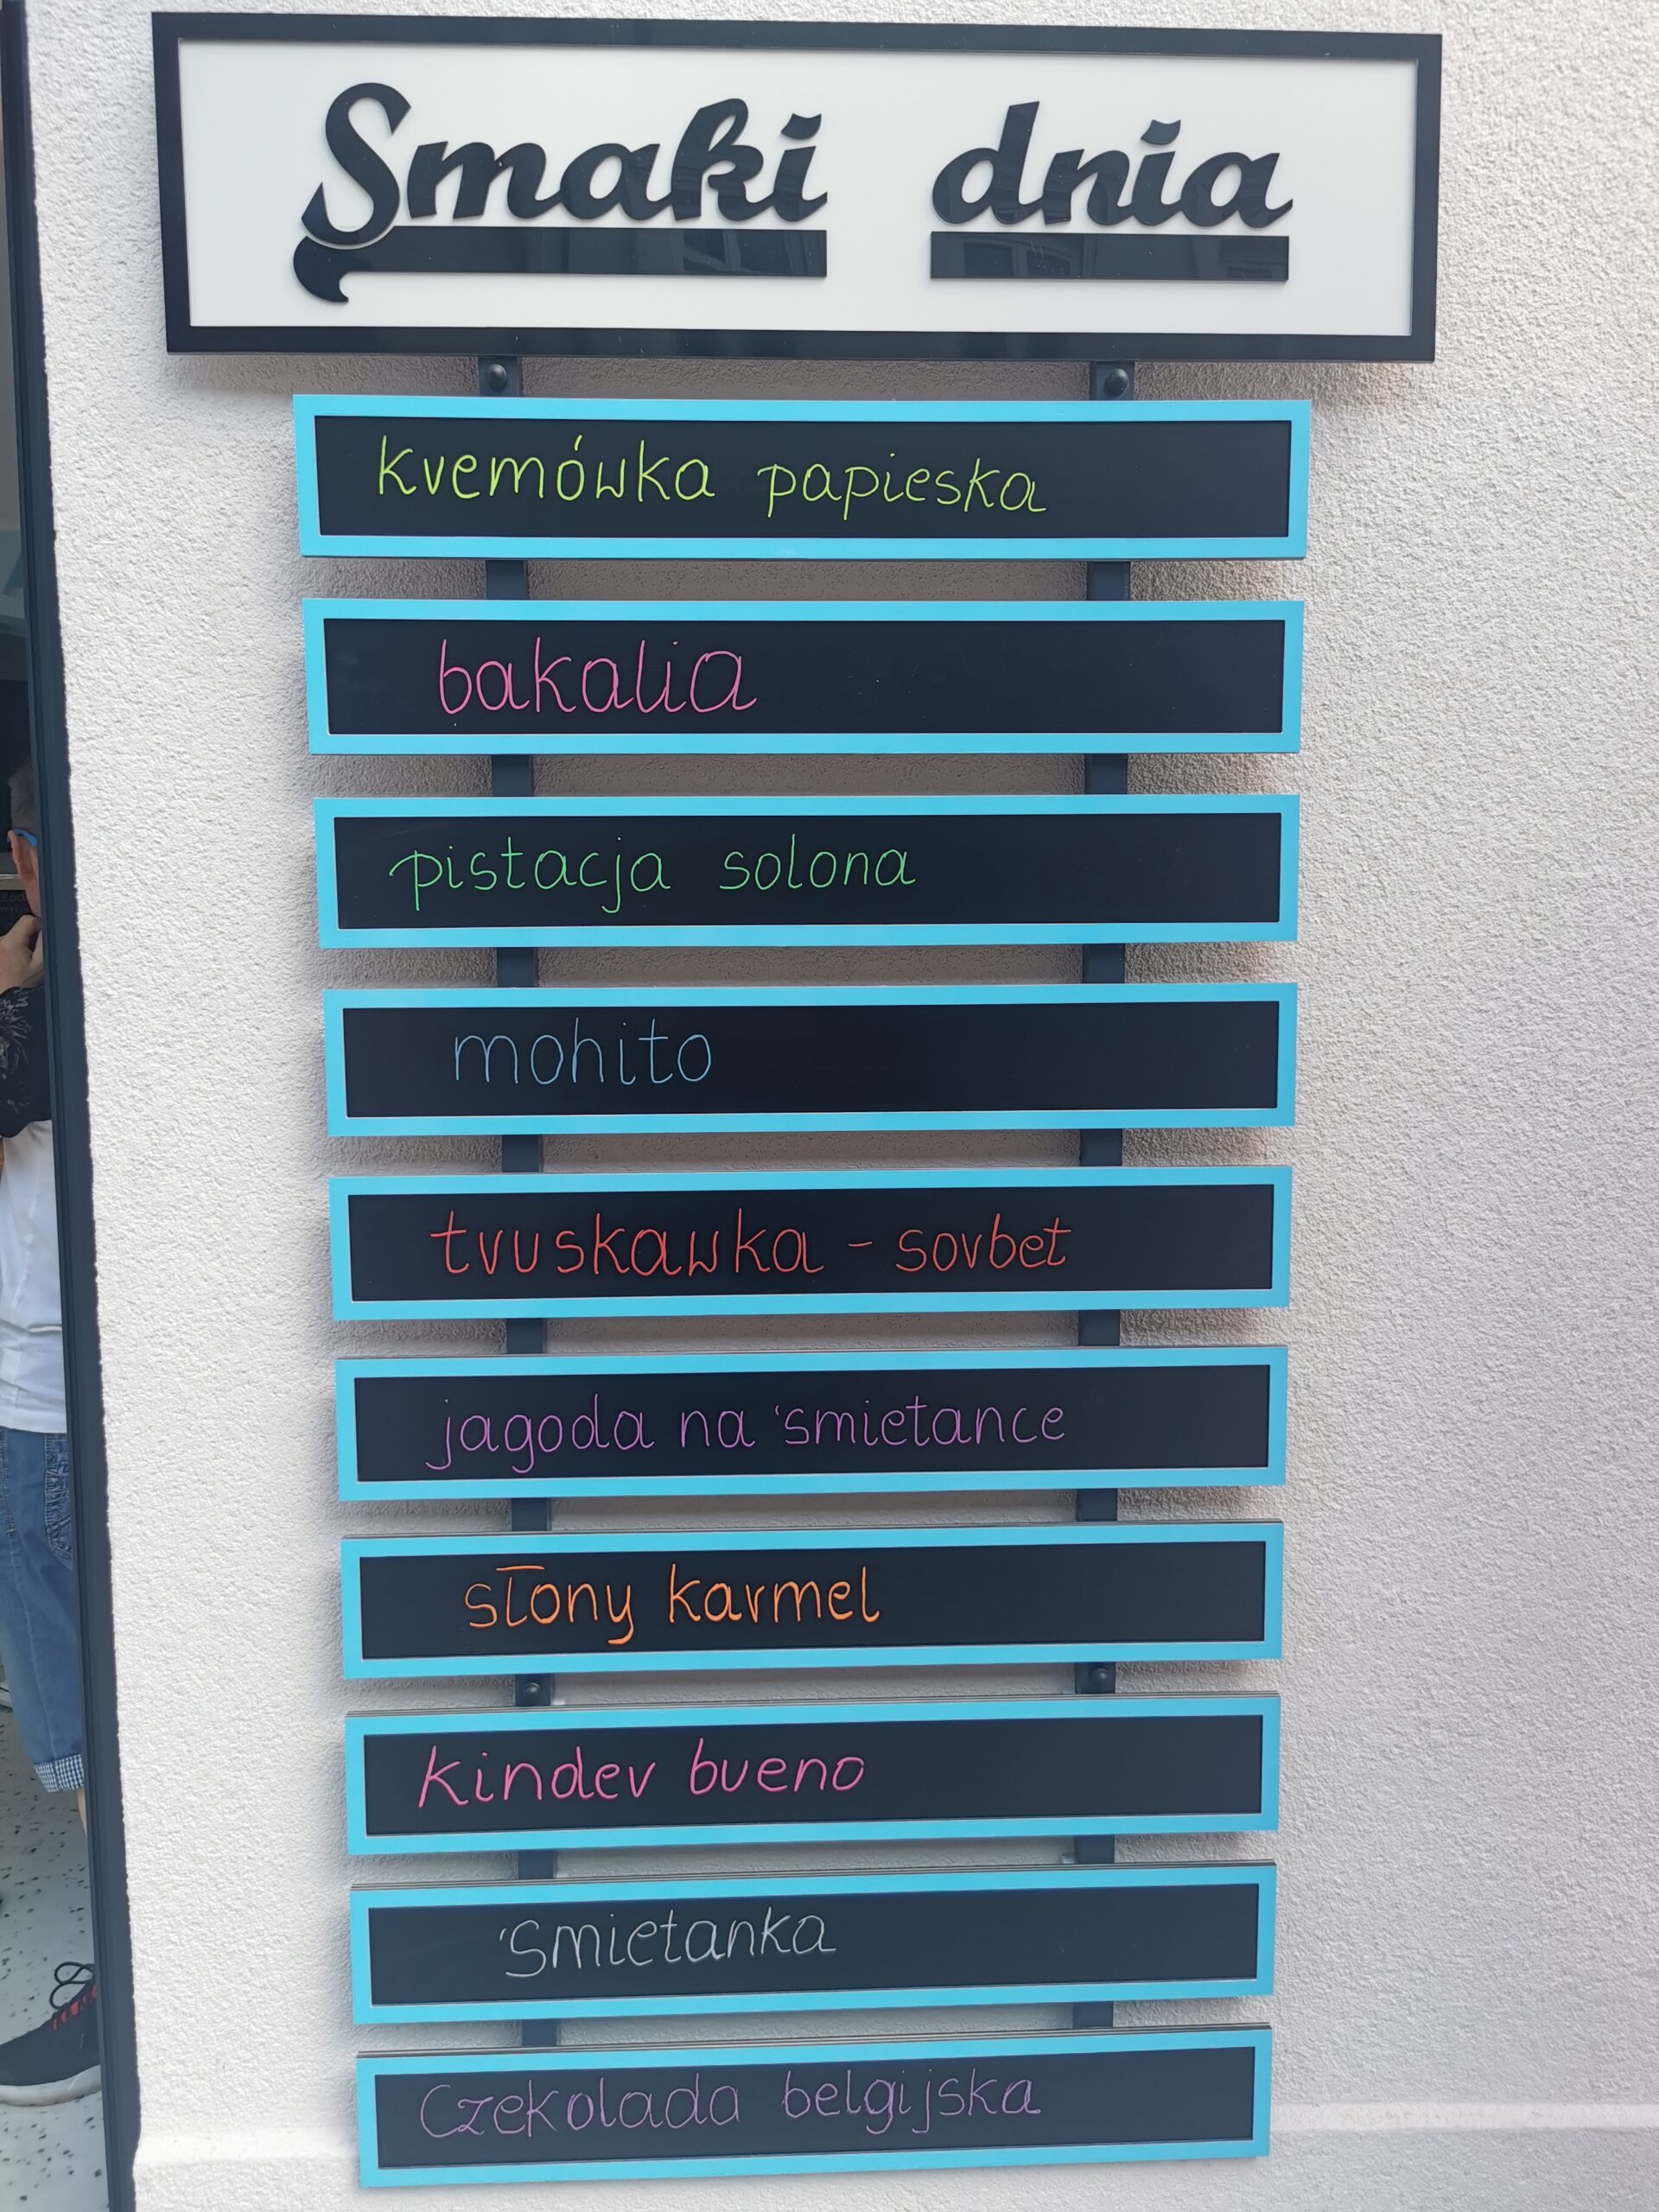 Smaki dnia
kremówka papieska
bakalia
pistacja solona
mohito
truskawka - sorbet
jagoda na śmietance
słony karmel
kinder bueno
śmietanka
Czekolada belgijska